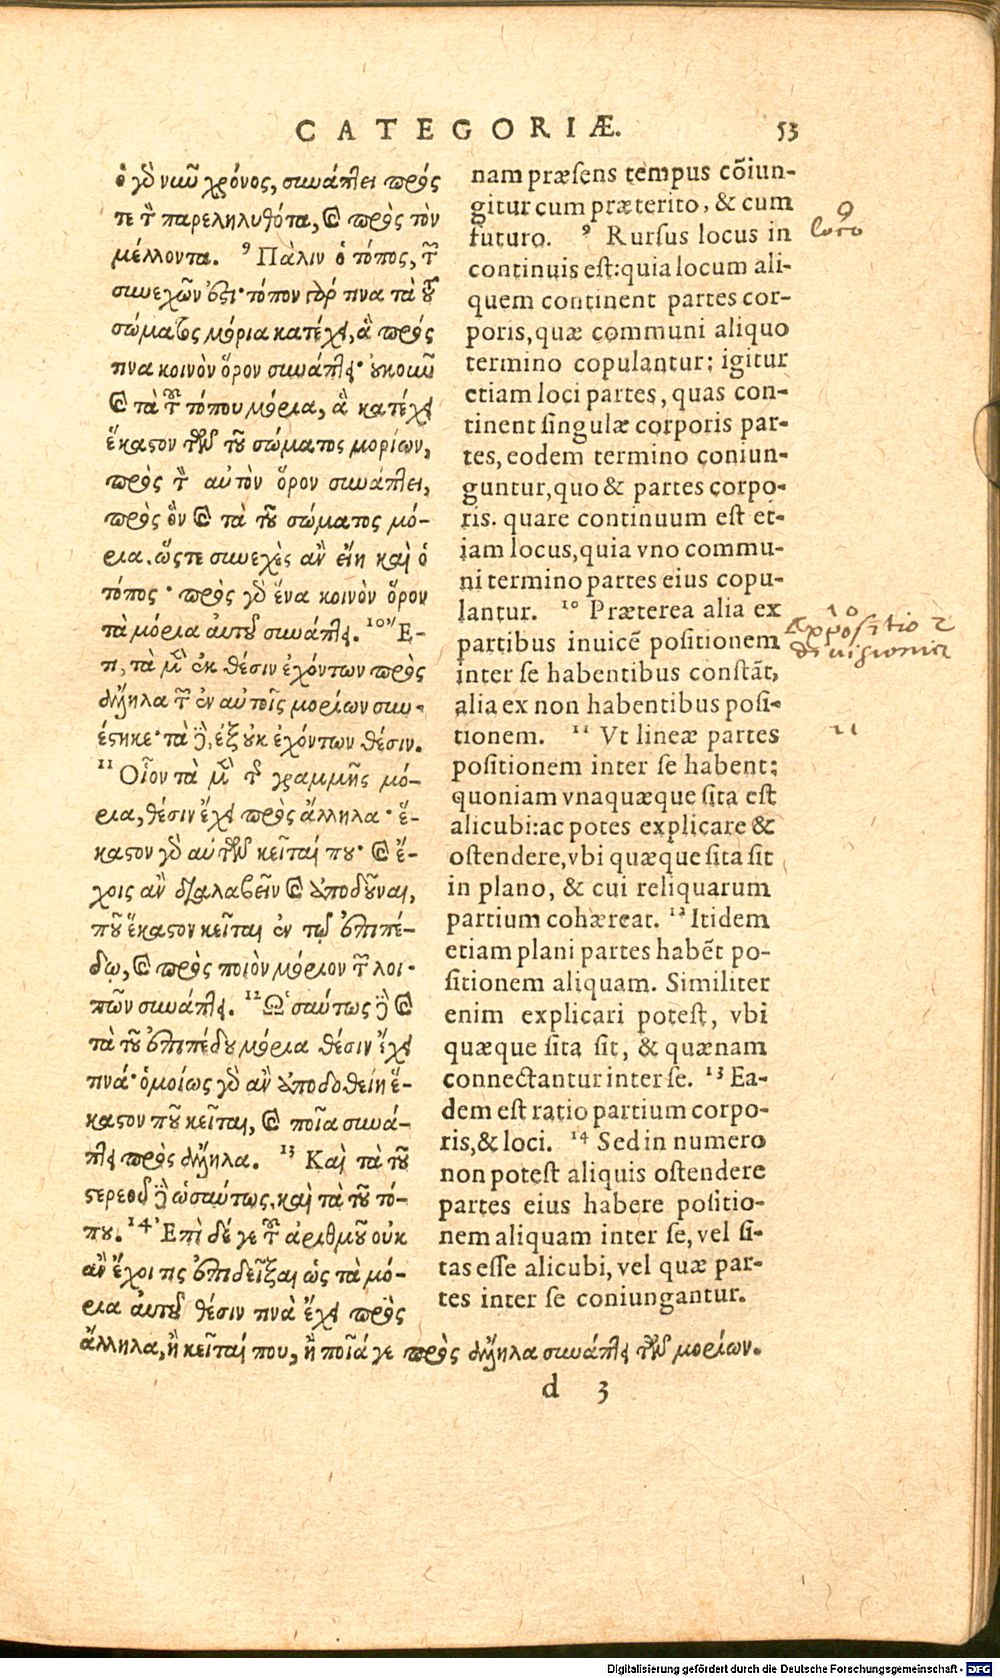 CATEGORIÆ. 53
ὁ γὸ νιῦ χρόνος, συνάπτει πρός
τε τ̀ παρεληλυθότα, καὶ πρὸς τὸν
μέλλοντα. ⁹ Πάλιν ὁ τόπος, τῶν
συνεχῶν ἐστι· τόπον γάρ τινα τὰ τοῦ
σώματος μόρια κατέχει, ἃ πρός
τινα κοινὸν ὅρον συνάπτει· οὐκοῦν
καὶ τὰ τοῦ τόπου μόρια, ἃ κατέχει
ἕκαστον τῶν τοῦ σώματος μορίων,
πρὸς τὸν αὐτὸν ὅρον συνάπτει,
πρὸς ὃν καὶ τὰ τοῦ σώματος μό-
ρια. ὥστε συνεχὲς ἂν εἴη καὶ ὁ
τόπος· πρὸς γὸ ἕνα κοινὸν ὅρον
τὰ μόρια αὐτοῦ συνάπτει. ¹⁰ Ἔ-
τι, τὰ μὲν ἐκ θέσιν ἐχόντων πρὸς
ἄλληλα τῶν ἐν αὐτοῖς μορίων συν-
έστηκε· τὰ δὲ, ἐξ οὐκ ἐχόντων θέσιν.
¹¹ Οἷον τὰ μὲν τῆς γραμμῆς μό-
ρια, θέσιν ἔχει πρὸς ἄλληλα· ἕ-
καστον γὸ αὐτῶν κεῖταί που· καὶ ἔ-
χοις ἂν διαλαβεῖν καὶ ἀποδοῦναι,
ποῦ ἕκαστον κεῖται ἐν τῷ ἐπιπέ-
δῳ, καὶ πρὸς ποῖον μόριον τῶν λοι-
πῶν συνάπτει. ¹² Ὡσαύτως δὲ καὶ
τὰ τοῦ ἐπιπέδου μόρια θέσιν ἔχει
τινά· ὁμοίως γὸ ἂν ἀποδοθείη ἕ-
καστον ποῦ κεῖται, καὶ ποῖα συνά-
πτει πρὸς ἄλληλα. ¹³ Καὶ τὰ τοῦ
στερεοῦ δὲ ὡσαύτως, καὶ τὰ τοῦ τό-
που. ¹⁴ Ἐπὶ δέ γε τοῦ ἀριθμοῦ οὐκ
ἂν ἔχοι τις ἐπιδεῖξαι ὡς τὰ μό-
ρια αὐτοῦ θέσιν τινὰ ἔχει πρὸς
ἄλληλα, ἢ κεῖταί που, ἢ ποῖά γε πρὸς ἄλληλα συνάπτει τῶν μορίων.
nam præsens tempus cõiun-
gitur cum præterito, & cum
futuro. ⁹ Rursus locus in
continuis est: quia locum ali-
quem continent partes cor-
poris, quæ communi aliquo
termino copulantur; igitur
etiam loci partes, quas con-
tinent singulæ corporis par-
tes, eodem termino coniun-
guntur, quo & partes corpo-
ris. quare continuum est et-
iam locus, quia vno commu-
ni termino partes eius copu-
lantur. ¹⁰ Præterea alia ex
partibus inuicẽ positionem
inter se habentibus constãt,
alia ex non habentibus posi-
tionem. ¹¹ Vt lineæ partes
positionem inter se habent;
quoniam vnaquæque sita est
alicubi: ac potes explicare &
ostendere, vbi quæque sita sit
in plano, & cui reliquarum
partium cohæreat. ¹² Itidem
etiam plani partes habẽt po-
sitionem aliquam. Similiter
enim explicari potest, vbi
quæque sita sit, & quænam
connectantur inter se. ¹³ Ea-
dem est ratio partium corpo-
ris, & loci. ¹⁴ Sed in numero
non potest aliquis ostendere
partes eius habere positio-
nem aliquam inter se, vel si-
tas esse alicubi, vel quæ par-
tes inter se coniungantur.
9
loco
10
Expositio 2
divisionis
11
d 3
Digitalisierung gefördert durch die Deutsche Forschungsgemeinschaft - DFG